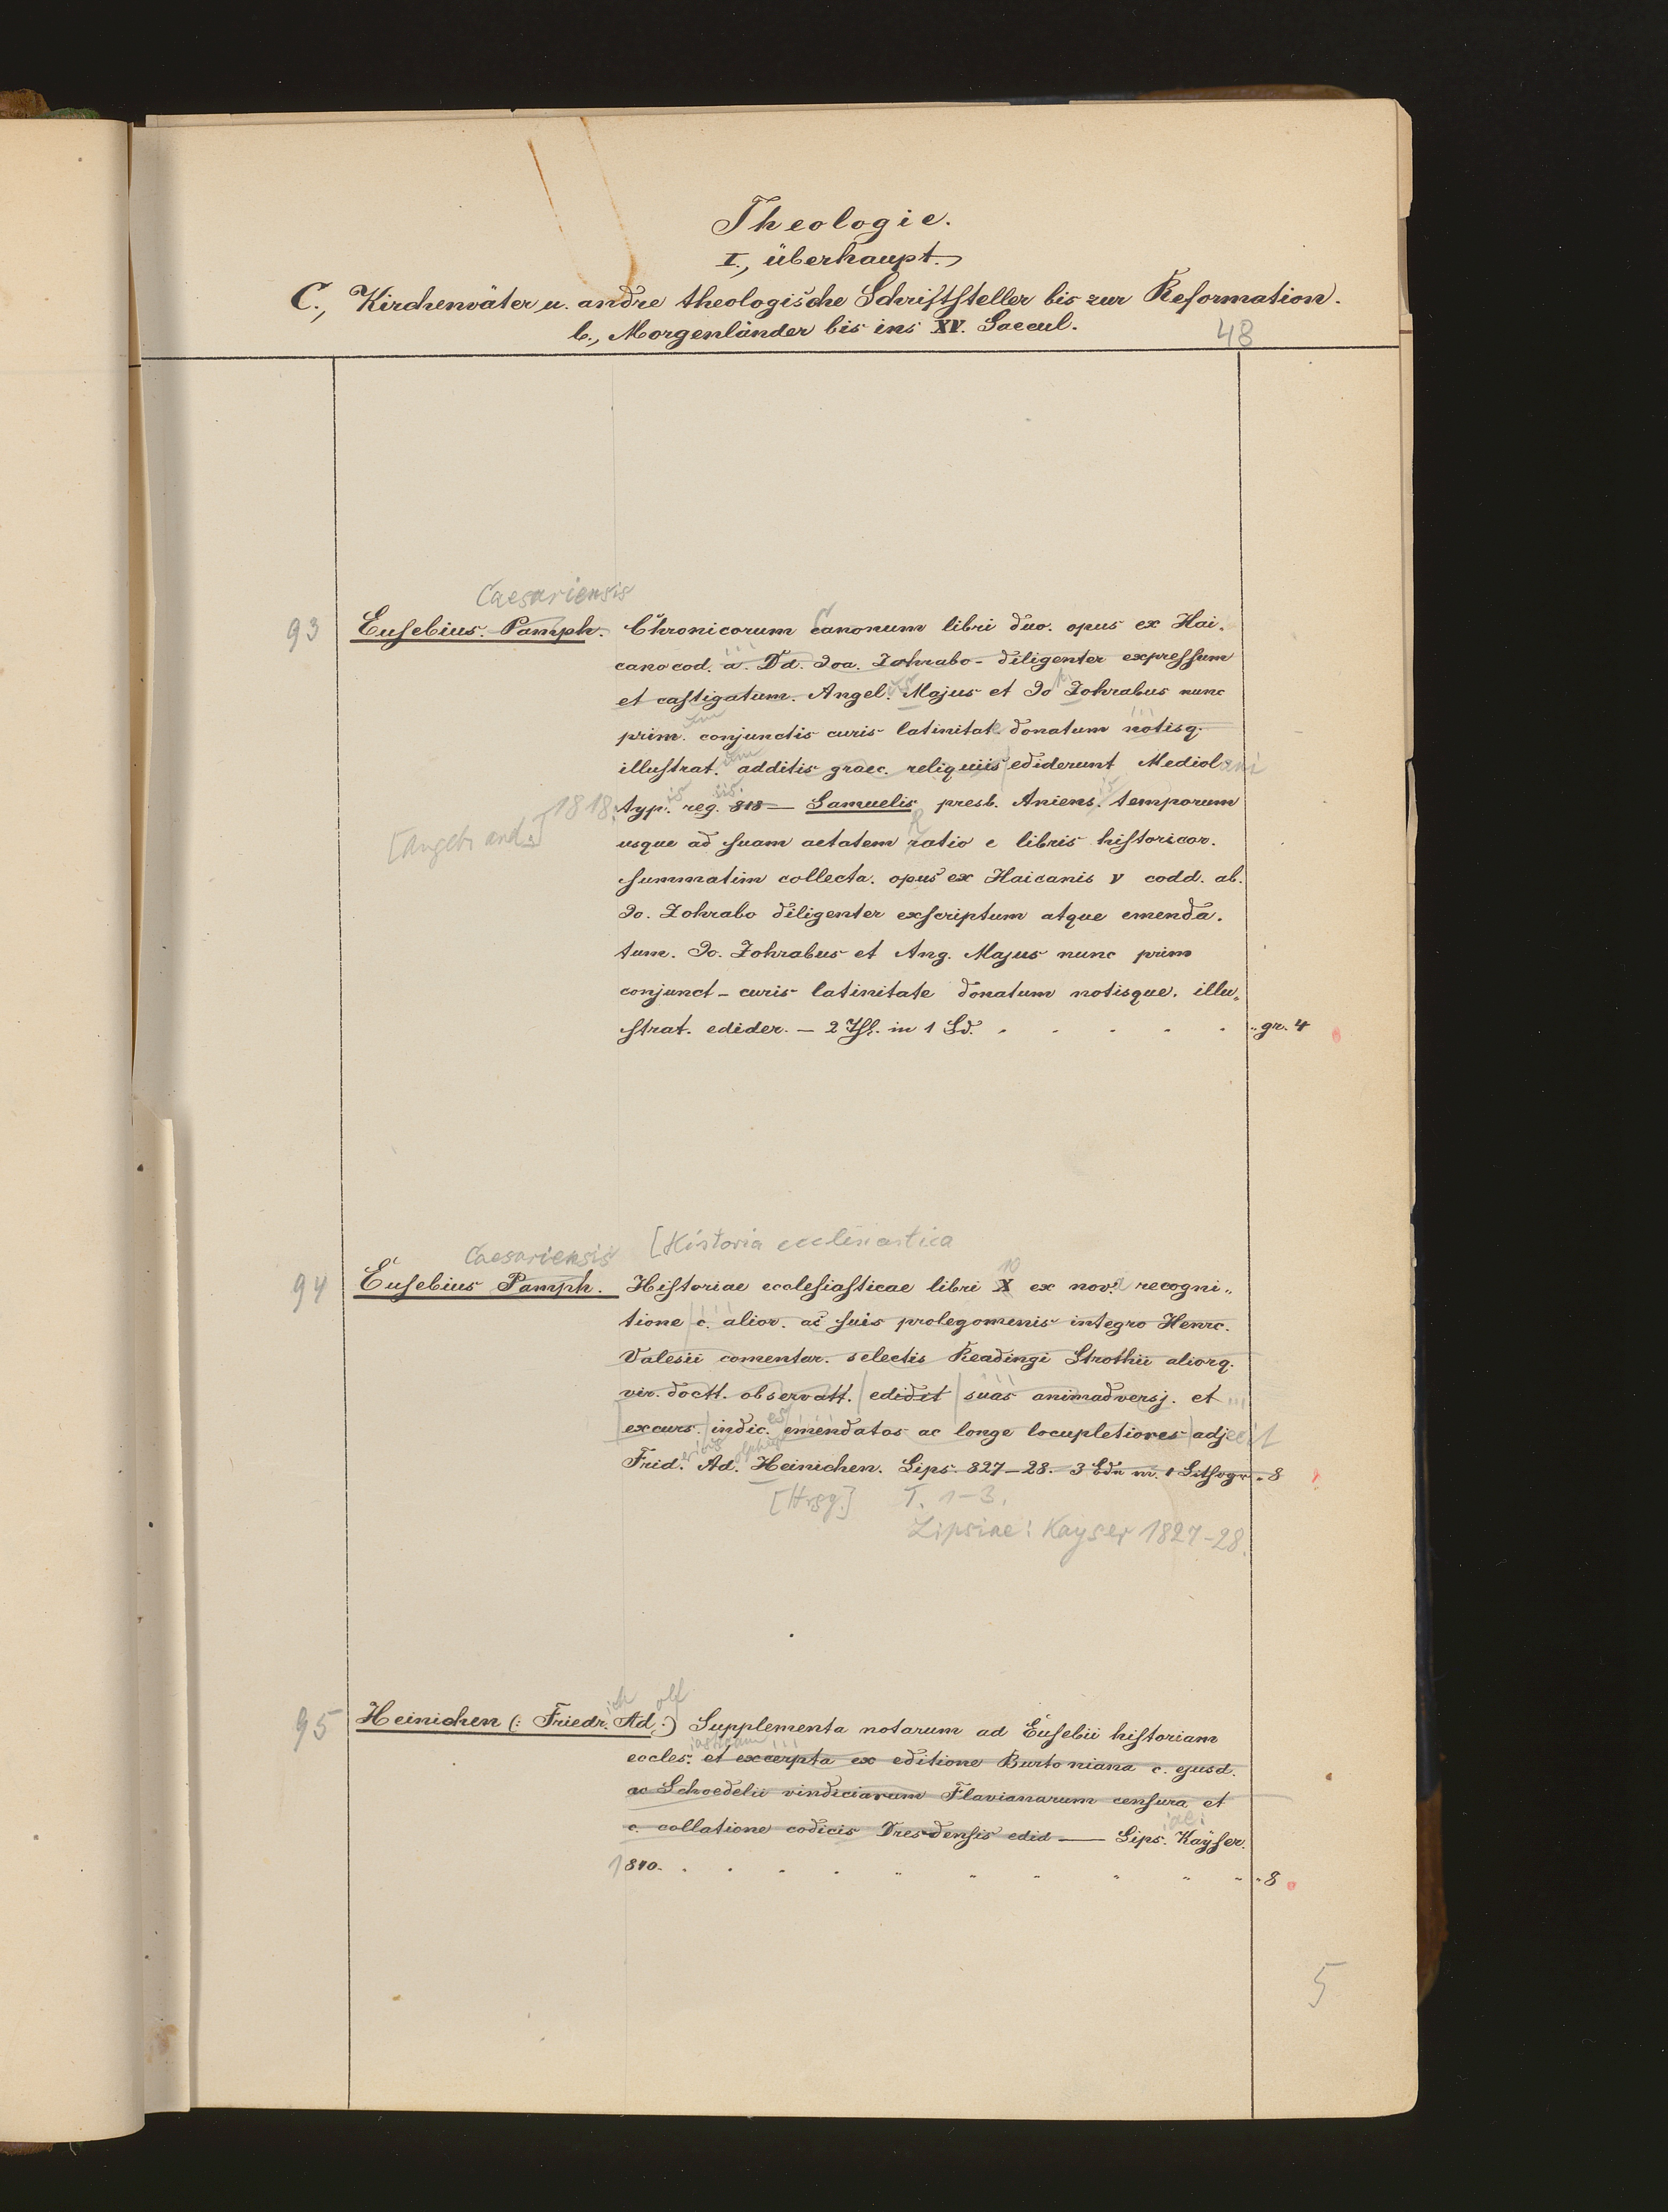 Theologie.
I., überhaupt.
C., Kirchenväter u. andre theologische Schriftsteller bis zur Reformation.
b., Morgenländer bis ins XV. Saecul.
48
Caesariensis
93 Eusebius Pamph. Chronicorum Canonum libri duo. opus ex Hai-
cano cod. a. Dd. Joa. Zohrabo diligenter expressum
et castigatum. Angel.us Majus et Jo Zohrabus nunc
prim.um conjunctis curis latinitate donatum notisq.
illustrat.um additis graec. reliquiis ediderunt Mediolani
1818. typ.is reg.iis. 818 — Samuelis presb. Aniens.is temporum
[Angeb. and.]
usque ad suam aetatem Ratio e libris historicor.
summatim collecta. opus ex Haicanis V codd. ab.
Jo. Zohrabo diligenter exscriptum atque emenda-
tum. Jo. Zohrabus et Ang. Majus nunc prim
conjunct– curis latinitate donatum notisque. illu-
strat. edider. — 2 in 1 Bd. . . . . . gr. 4
Caesariensis [Historia ecclesiastica
94 Eusebius Pamph. Historiae ecclesiasticae libri X 10 ex nova recogni-
tione c. alior. ac suis prolegomenis integro Henrc.
Valesii comentar. selectis Readingi Strothii aliorq.
vir. doctt. observatt. edidit suas animadversj. et
excurs. indic.es emendatos ac longe locupletiores adjecit
Frid.ericus Ad.olphus Heinichen. Lips. 827–28. 3 Bde m. 1 Lithogr. 8
[Hrsg.] T. 1–3.
Lipsiae: Kayser 1827–28.
95 Heinichen (: Friedr.ich Ad.olf :) Supplementa notarum ad Eusebii historiam
eccles.iasticam et excerpta ex editione Burtoniana c. ejusd.
ac Schoedelii vindiciarum Flavianarum censura et
c. collatione codicis Dresdensis edid — Lips.iae: Kayser.
1840. . . . . . . . . . . 8
5